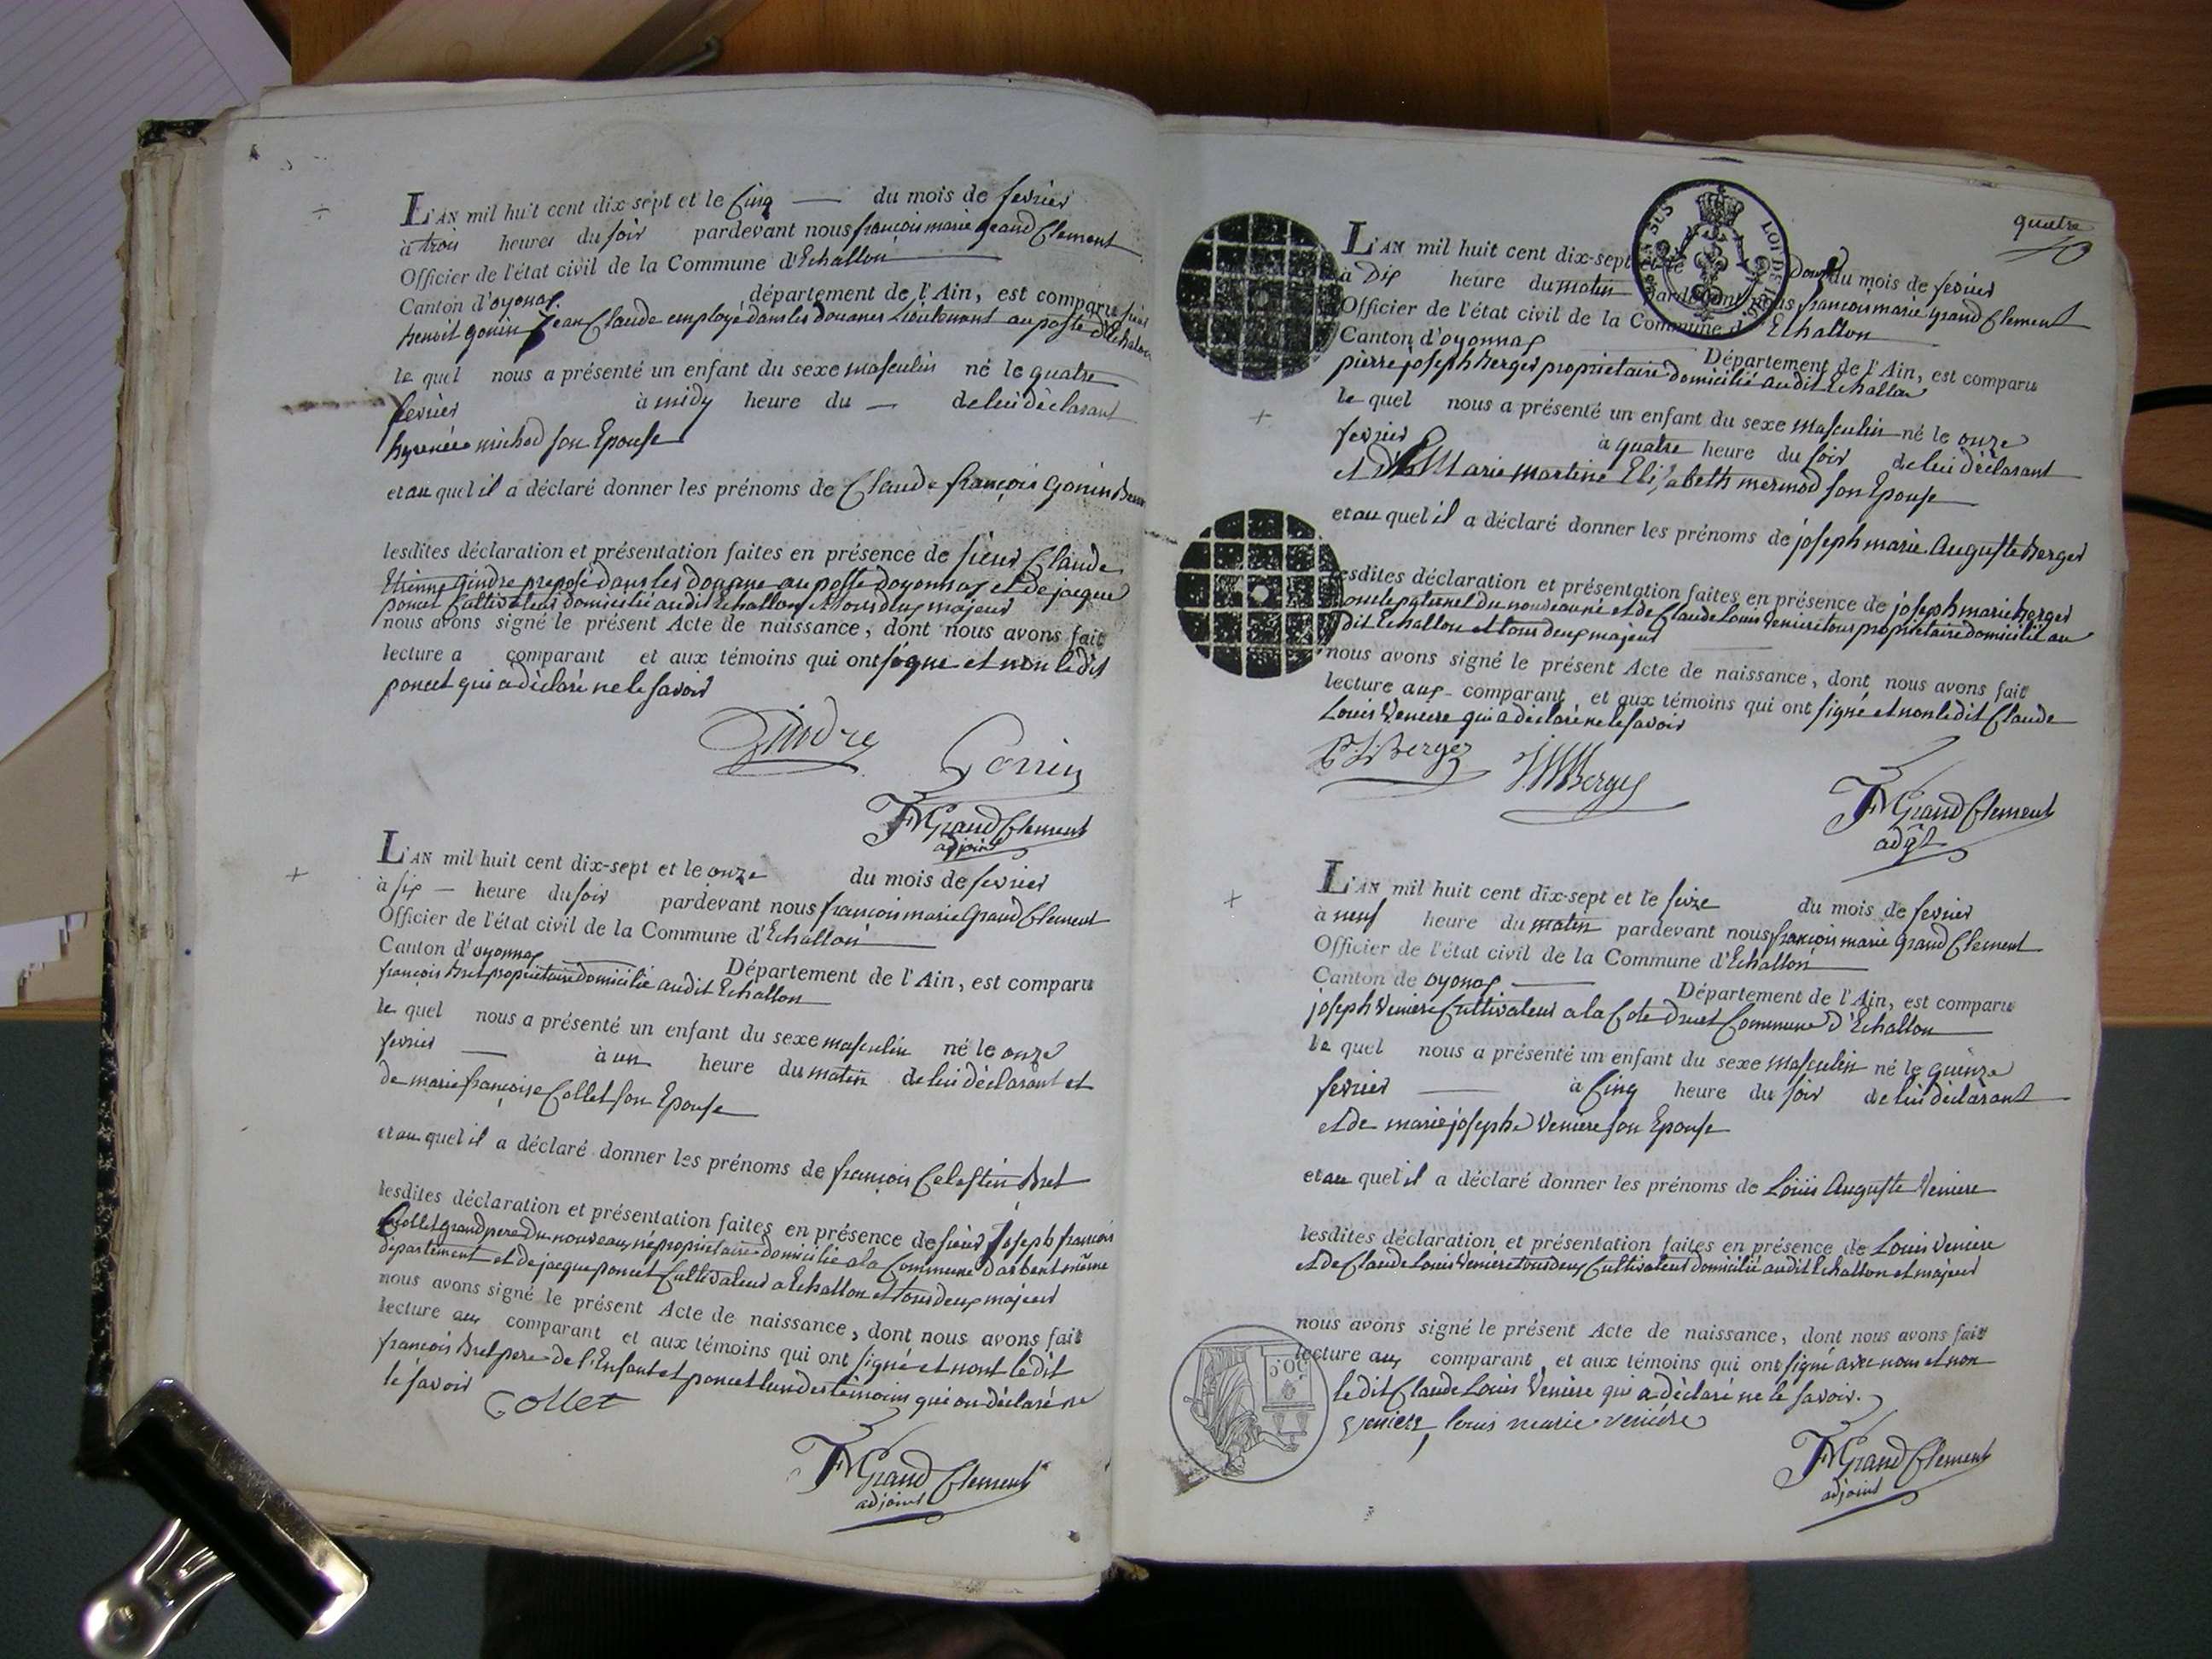 L'AN mil huit cent dix-sept et le Cinq — du mois de fevrier
à trois heures du soir pardevant nous françois marie grand Clement
Officier de l'état civil de la Commune d'Echallon
Canton d'oyonax département de l'Ain, est comparu sieur
benoit gonin jean Claude employé dans les douanes Lieutenant au poste d'Echalon
le quel nous a présenté un enfant du sexe masculin né le quatre
fevrier à midy heure du — de lui déclarant
hyrenée michod son Epouse
et au quel il a déclaré donner les prénoms de Claude françois Gonin
lesdites déclaration et présentation faites en présence de sieur Claude
Etienne gindre preposé dans les douane au poste doyonnax et de jacque
poncet Cultivateur domicilié audit Echallon et tous deux majeur
nous avons signé le présent Acte de naissance, dont nous avons fait
lecture a comparant et aux témoins qui ont signe et non ledit
poncet qui a déclaré ne le savoir
Gindre Gonin
FMGrand Clement
adjoint
L'AN mil huit cent dix-sept et le onze du mois de fevrier
à six — heure du soir pardevant nous françois marie Grand Clement
Officier de l'état civil de la Commune d'Echallon
Canton d'oyonnax Département de l'Ain, est comparu
françois Bret propriétaire domicilié audit Echallon
le quel nous a présenté un enfant du sexe masculin né le onze
fevrier — à un heure du matin de lui déclarant et
de marie françoise Collet son Epouse
et au quel il a déclaré donner les prénoms de françois Celestin Bret
lesdites déclaration et présentation faites en présence de sieur Joseph francois
Collet grand pere du nouveau né propriétaire domicilié a la Commune d'arbent même
département et de jacque poncet Cultivateur a Echallon et tous deux majeur
nous avons signé le présent Acte de naissance, dont nous avons fait
lecture aux comparant et aux témoins qui ont signé et nont ledit
françois Bret pere de l'Enfant et poncet lun des témoins qui on déclaré ne
le savoir
Collet
FMGrand Clement
adjoint
quatre
SUS LOI DE
L'AN mil huit cent dix-sept et le douze du mois de fevrier
à Dix heure du matin pardevant nous françois marie grand Clement
Officier de l'état civil de la Commune d'Echallon
Canton d'oyonnax Département de l'Ain, est comparu
pierre joseph berger proprietaire domicilié audit Echallon
le quel nous a présenté un enfant du sexe masculin né le onze
fevrier à quatre heure du soir de lui déclarant
et de Marie martine Elizabeth mermod son Epouse
et au quel il a déclaré donner les prénoms de joseph marie Auguste berger
lesdites déclaration et présentation faites en présence de joseph marie berger
oncle paternel du nouveau né et de Claude Louis Veniere tous propriétaire domicilié au
dit Echallon et tous deux majeur
nous avons signé le présent Acte de naissance, dont nous avons fait
lecture aux comparant et aux témoins qui ont signé et non ledit Claude
Louis Veniere qui a déclaré ne le savoir
Berger JMBerger
FMGrand Clement
adjt
L'AN mil huit cent dix-sept et le seize du mois de fevrier
à neuf heure du matin pardevant nous françois marie grand Clement
Officier de l'état civil de la Commune d'Echallon
Canton de oyonax — Département de l'Ain, est comparu
joseph Veniere Cultivateur a la Cote Commune d'Echallon
le quel nous a présenté un enfant du sexe masculin né le quinze
fevrier — à Cinq heure du soir de lui déclarant
et de marie josephe Veniere son Epouse
et au quel il a déclaré donner les prénoms de Louis Auguste Veniere
lesdites déclaration et présentation faites en présence de Louis Veniere
et de Claude Louis Veniere tous deux Cultivateur domicilié audit Echallon et majeur
nous avons signé le présent Acte de naissance, dont nous avons fait
lecture aux comparant et aux témoins qui ont signé avec nous et non
ledit Claude Louis Veniere qui a déclaré ne le savoir.
veniere, louis marie veniére
50 C
FMGrand Clement
adjoint